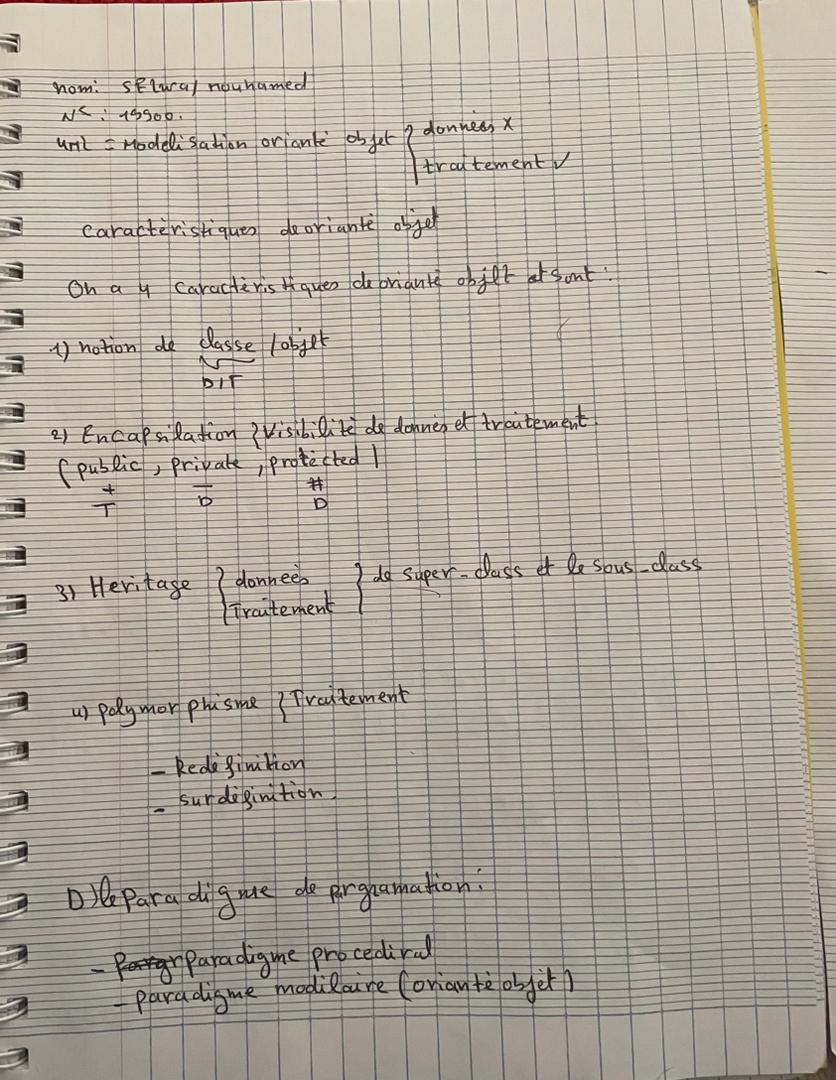 nom: SElwa/ mouhamed
N<: 19900.
uml = Modélisation orianté objet { données x
traitement ✓
Caractèristiques de orianté objet
On a 4 Caractèristiques de orianté objèt et sont :
1) notion de classe / objet
D/T
2) Encapsilation } Visibilitè de donnès et traitement.
( public , private , protected )
+ − #
T D D
3) Heritage { donneès } de super-class et le sous-class
Traitement
4) polymorphisme } Traitement
- Redéfinition
- surdéfinition
D) le paradigme de prgramation :
- paradigme procediral
- paradigme modilaire (oriantè objèt)